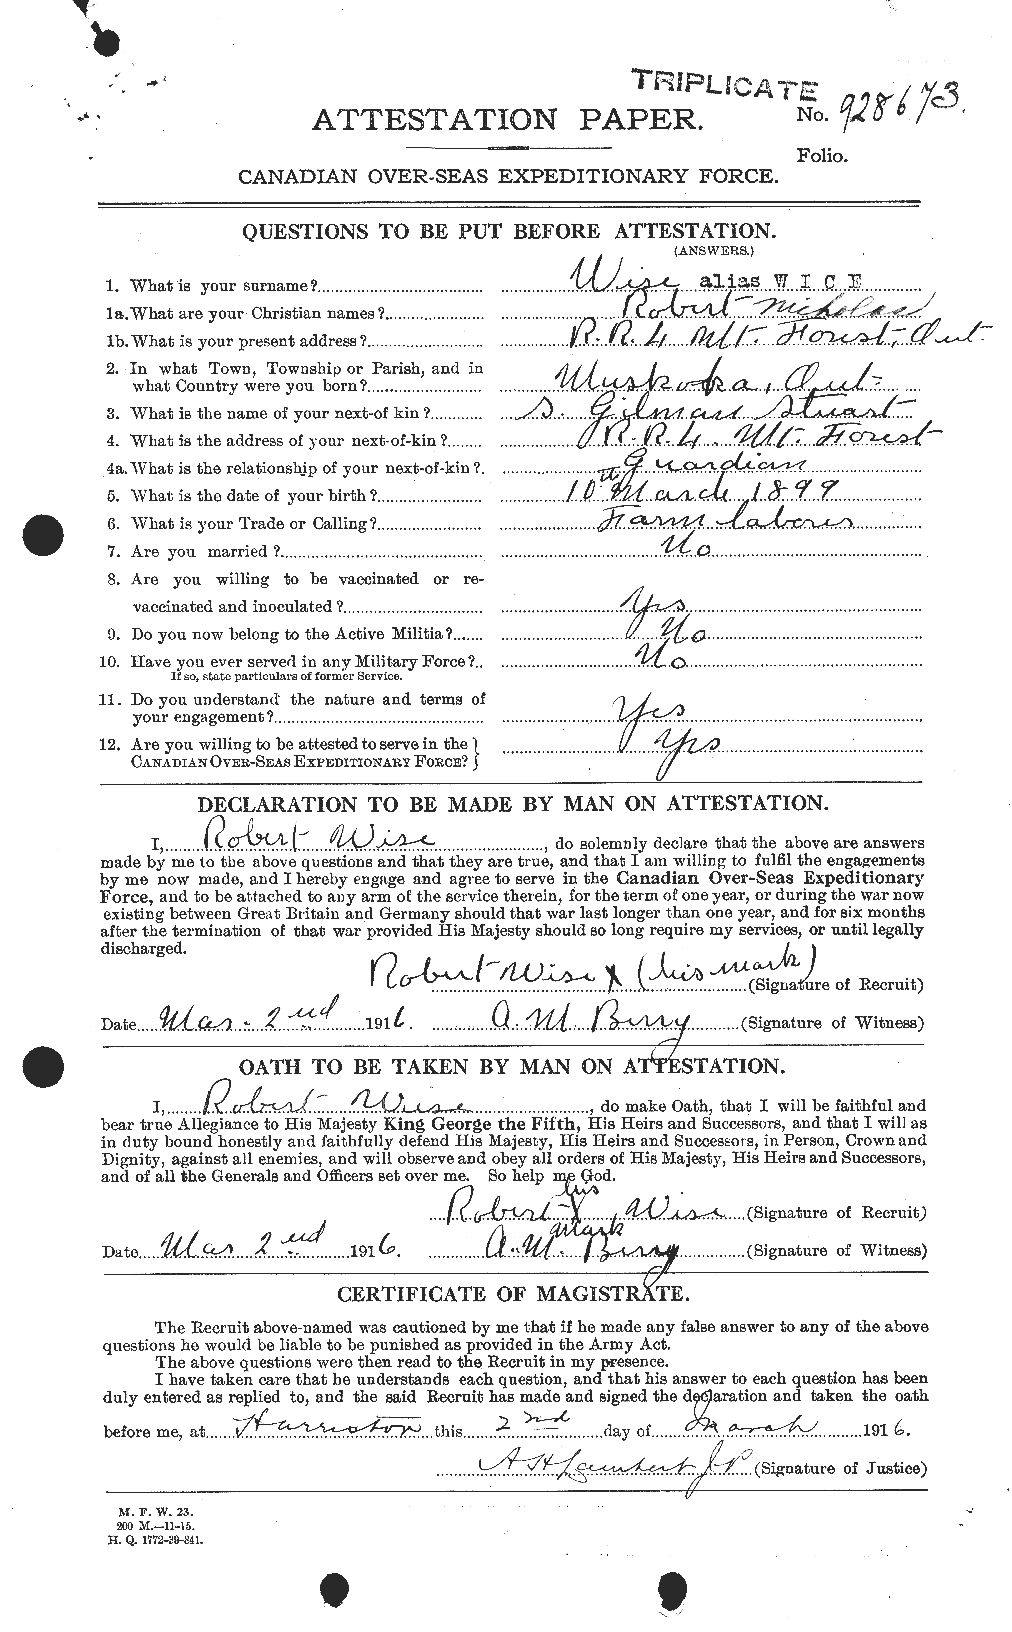 TRIPLICATE
ATTESTATION PAPER.
No. 928673.
Folio.
CANADIAN OVER-SEAS EXPEDITIONARY FORCE.
QUESTIONS TO BE PUT BEFORE ATTESTATION.
(ANSWERS.)
1. What is your surname? Wise alias W I C E
1a. What are your Christian names? Robert Nicholas
1b. What is your present address? R.R. 4 Mt. Forest, Ont.
2. In what Town, Township or Parish, and in
what Country were you born? Muskoka, Ont.
3. What is the name of your next-of kin? S. Gilman Stuart
4. What is the address of your next-of-kin? R.R. 4. Mt. Forest
4a. What is the relationship of your next-of-kin? Guardian
5. What is the date of your birth? 10th March 1899
6. What is your Trade or Calling? Farm laborer
7. Are you married? No
8. Are you willing to be vaccinated or re-
vaccinated and inoculated? Yes
9. Do you now belong to the Active Militia? No
10. Have you ever served in any Military Force? No
If so, state particulars of former Service.
11. Do you understand the nature and terms of
your engagement? Yes
12. Are you willing to be attested to serve in the
CANADIAN OVER-SEAS EXPEDITIONARY FORCE? Yes
DECLARATION TO BE MADE BY MAN ON ATTESTATION.
I, Robert Wise, do solemnly declare that the above are answers
made by me to the above questions and that they are true, and that I am willing to fulfil the engagements
by me now made, and I hereby engage and agree to serve in the Canadian Over-Seas Expeditionary
Force, and to be attached to any arm of the service therein, for the term of one year, or during the war now
existing between Great Britain and Germany should that war last longer than one year, and for six months
after the termination of that war provided His Majesty should so long require my services, or until legally
discharged.
Robert Wise X (his mark)
(Signature of Recruit)
Date Mar. 2nd 1916. A. M Berry (Signature of Witness)
OATH TO BE TAKEN BY MAN ON ATTESTATION.
I, Robert Wise, do make Oath, that I will be faithful and
bear true Allegiance to His Majesty King George the Fifth, His Heirs and Successors, and that I will as
in duty bound honestly and faithfully defend His Majesty, His Heirs and Successors, in Person, Crown and
Dignity, against all enemies, and will observe and obey all orders of His Majesty, His Heirs and Successors,
and of all the Generals and Officers set over me. So help me God.
his
Robert X Wise (Signature of Recruit)
mark
Date Mar 2nd 1916. A. M. Berry (Signature of Witness)
CERTIFICATE OF MAGISTRATE.
The Recruit above-named was cautioned by me that if he made any false answer to any of the above
questions he would be liable to be punished as provided in the Army Act.
The above questions were then read to the Recruit in my presence.
I have taken care that he understands each question, and that his answer to each question has been
duly entered as replied to, and the said Recruit has made and signed the declaration and taken the oath
before me, at Harriston this 2nd day of March 1916.
A H Lambert J.P. (Signature of Justice)
M. F. W. 23.
200 M.—11-15.
H. Q. 1772-39-841.